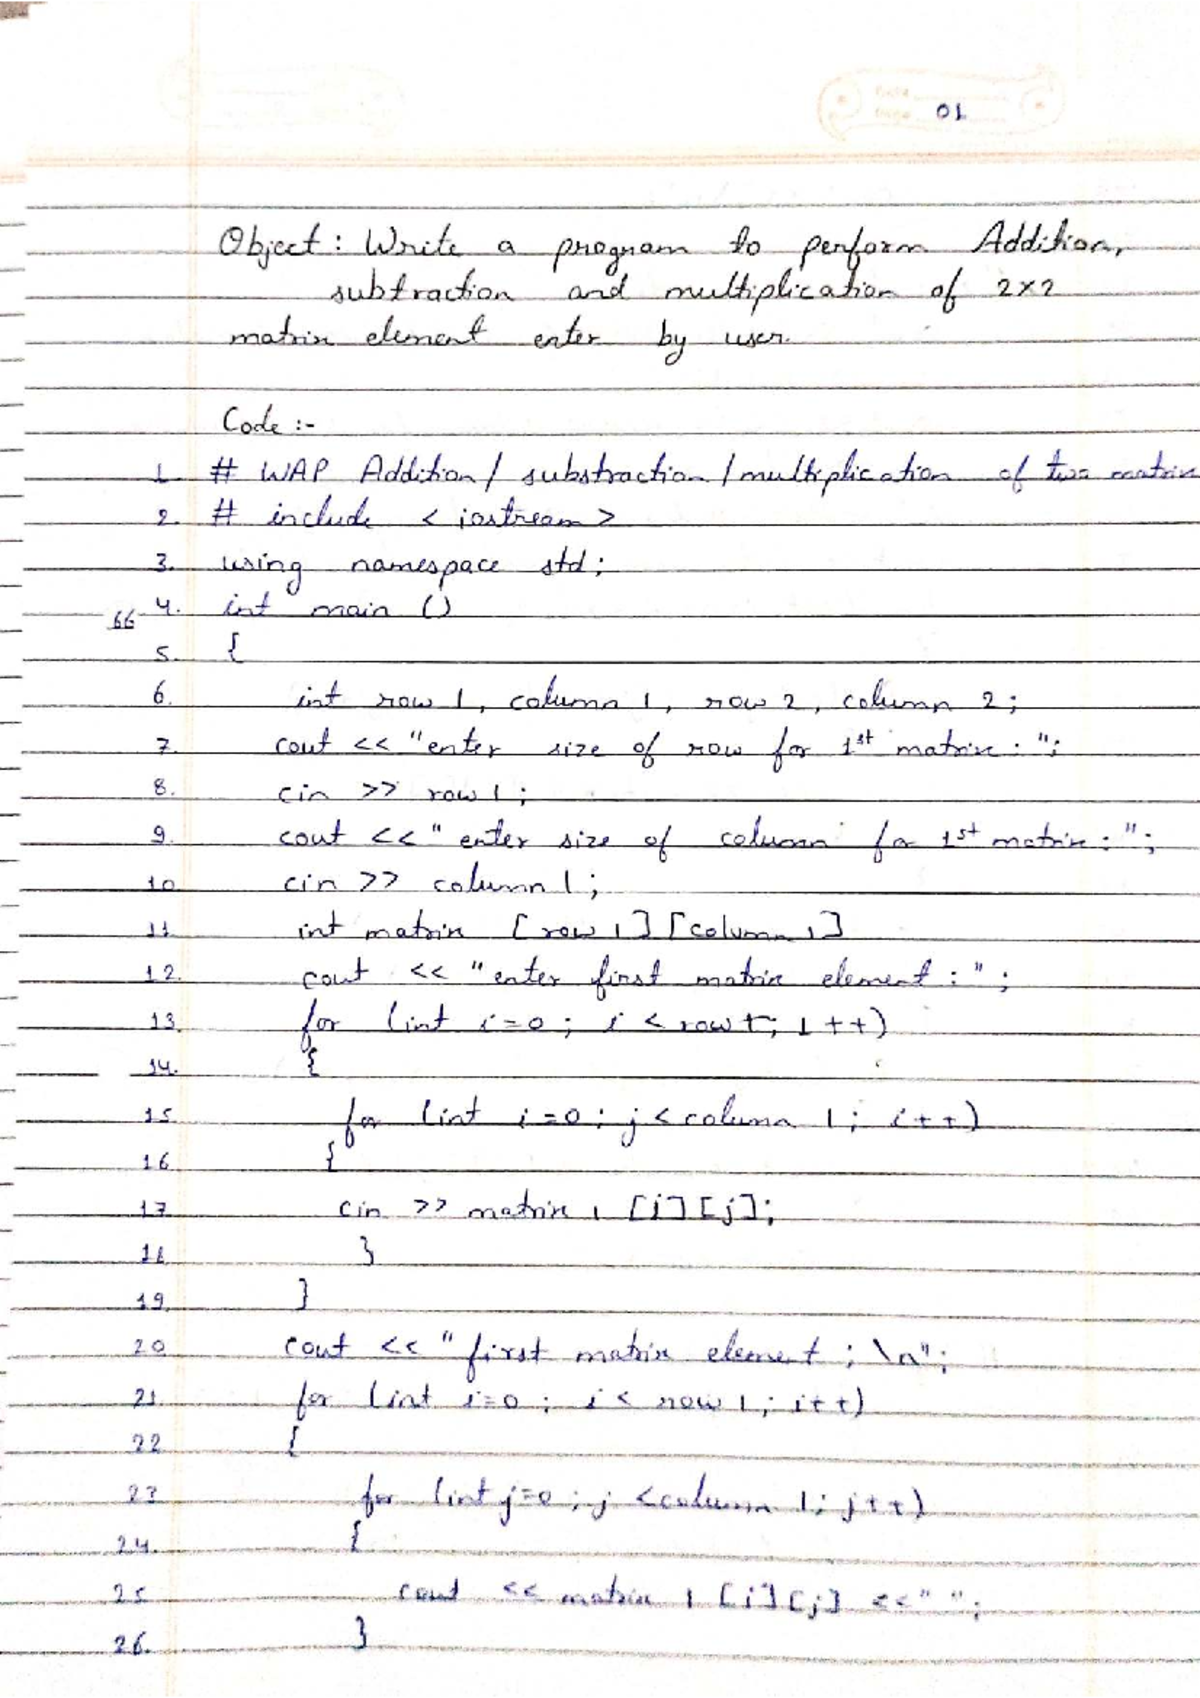 01
Object : Write a program to perform Addition,
subtraction and multiplication of 2×2
matrix element enter by user.
Code :-
1. # WAP Addition / substraction / multiplication of two matrix
2. # include < iostream >
3. using namespace std ;
66 4. int main ()
5. {
6. int row 1, column 1, row 2, column 2 ;
7. cout << "enter size of row for 1st matrix : ";
8. cin >> row 1 ;
9. cout << " enter size of column for 1st matrix : " ;
10 cin >> column 1 ;
11. int matrix [row 1] [column 1]
12. cout << "enter first matrix element : " ;
13. for (int i=0 ; i < row 1; i++)
14. {
15 for (int i=0 ; j < column 1 ; i++)
16 {
17 cin >> matrix 1 [i][j];
18 }
19. }
20 cout << " first matrix element ; \n";
21 for (int i=0 ; i < row 1 ; i++)
22 {
23 for (int j=0 ; j <column 1; j++)
24. {
25 cout << matrix 1 [i][j] <<" ";
26. }